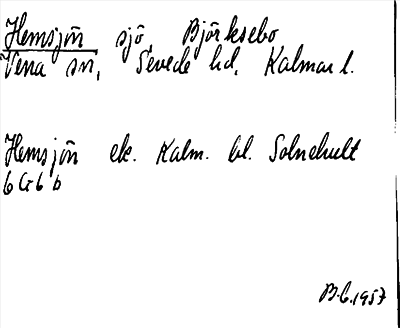 Hemsjön sjö, Björksebo
Vena sn, Sevede hd, Kalmar l.
Hemsjön ek. Kalm. bl. Solnehult
6 G 6 b
B.C. 1957